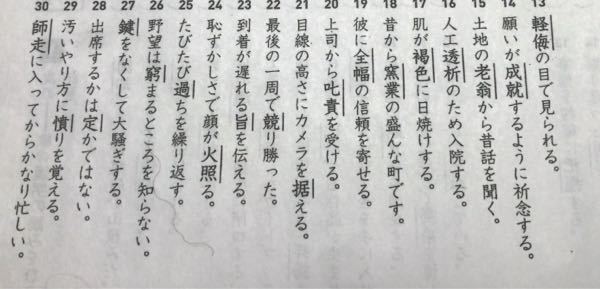 13 軽侮の目で見られる。
14 願いが成就するように祈念する。
15 土地の老翁から昔話を聞く。
16 人工透析のため入院する。
17 肌が褐色に日焼けする。
18 昔から窯業の盛んな町です。
19 彼に全幅の信頼を寄せる。
20 上司から叱責を受ける。
21 目線の高さにカメラを据える。
22 最後の一周で競り勝った。
23 到着が遅れる旨を伝える。
24 恥ずかしさで顔が火照る。
25 たびたび過ちを繰り返す。
26 野望は窮まるところを知らない。
27 鍵をなくして大騒ぎする。
28 出席するかは定かではない。
29 汚いやり方に憤りを覚える。
30 師走に入ってからかなり忙しい。